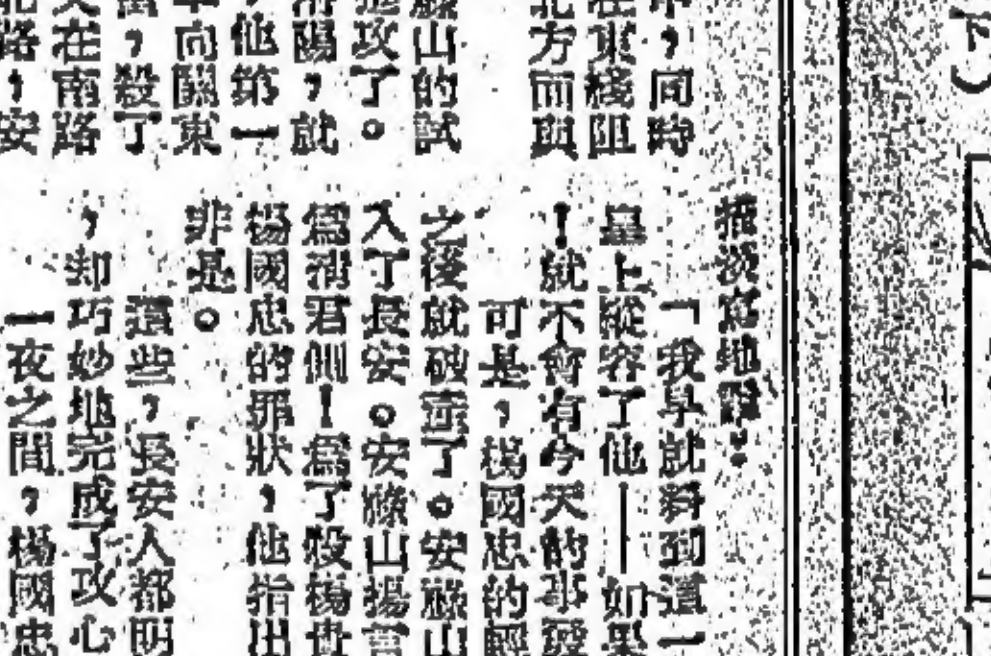 下)
,同時
在東綫阻
北方面與
祿山的試
進攻了。
洛陽,就
,他第一
軍向關東
,殺了
又在南路
北路,安
描淡寫地說:
「我早就料到這一
皇上縱容了他——如果
!就不會有今天的事發
可是,楊國忠的輕
之後就破產了。安祿山
入了長安。安祿山揚言
爲清君側!爲了殺楊貴
楊國忠的罪狀,他指出
非是。
這些,長安人都明
,却巧妙地完成了攻心
一夜之間,楊國忠